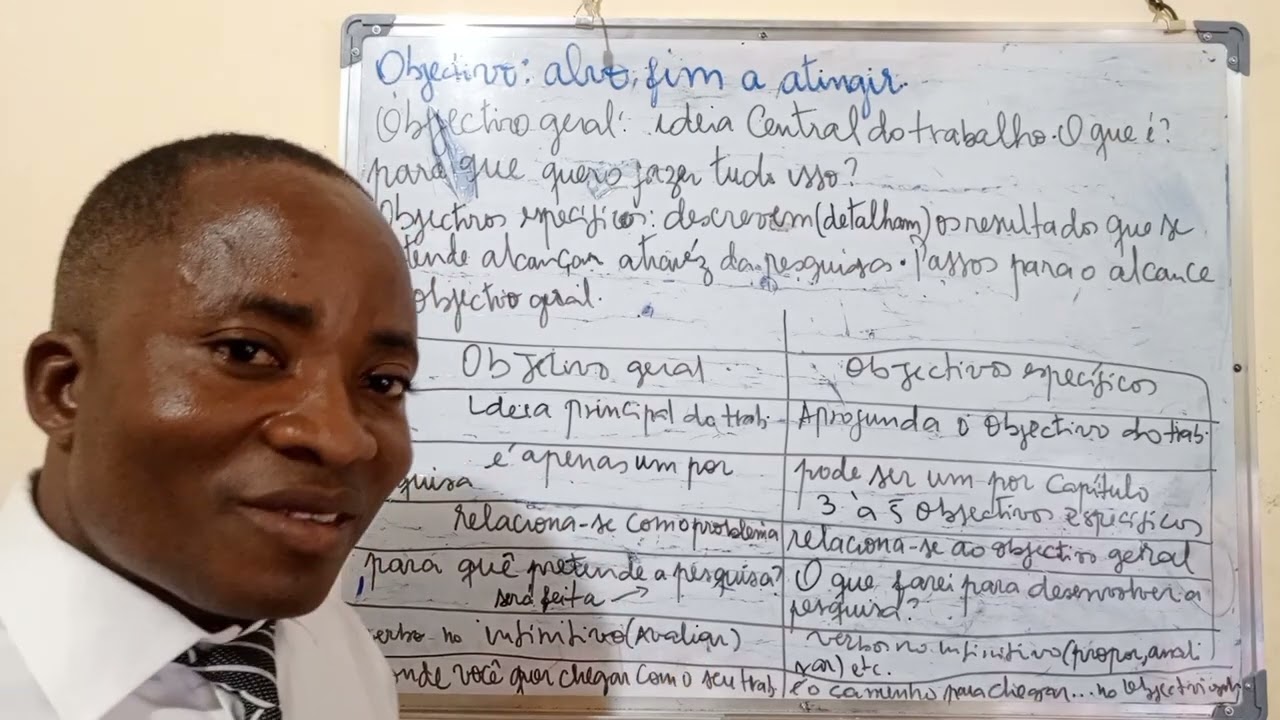 Objectivo: alvo, fim a atingir.
Objectivo geral: ideia Central do trabalho. O que é?
para que quero fazer tudo isso?
Objectivos específicos: descrevem (detalham) os resultados que se
tende alcançar atravéz da pesquisa. Passos para o alcance
objectivo geral.
Objetivo geral
Objectivos específicos
Ideia principal do trab.
Aprofunda o Objectivo do trab.
é apenas um por
quisa
pode ser um por Capítulo
3 à 5 Objectivos específicos
relaciona-se com o problema
relaciona-se ao objectivo geral
para quê pretende a pesquisa?
será feita →
O que farei para desenvolver a
pesquisa?
verbo no infinitivo (Avaliar)
verbos no infinitivo (propor, anali
sar) etc.
onde você quer chegar com o seu trab
é o caminho para chegar... no Objectivo